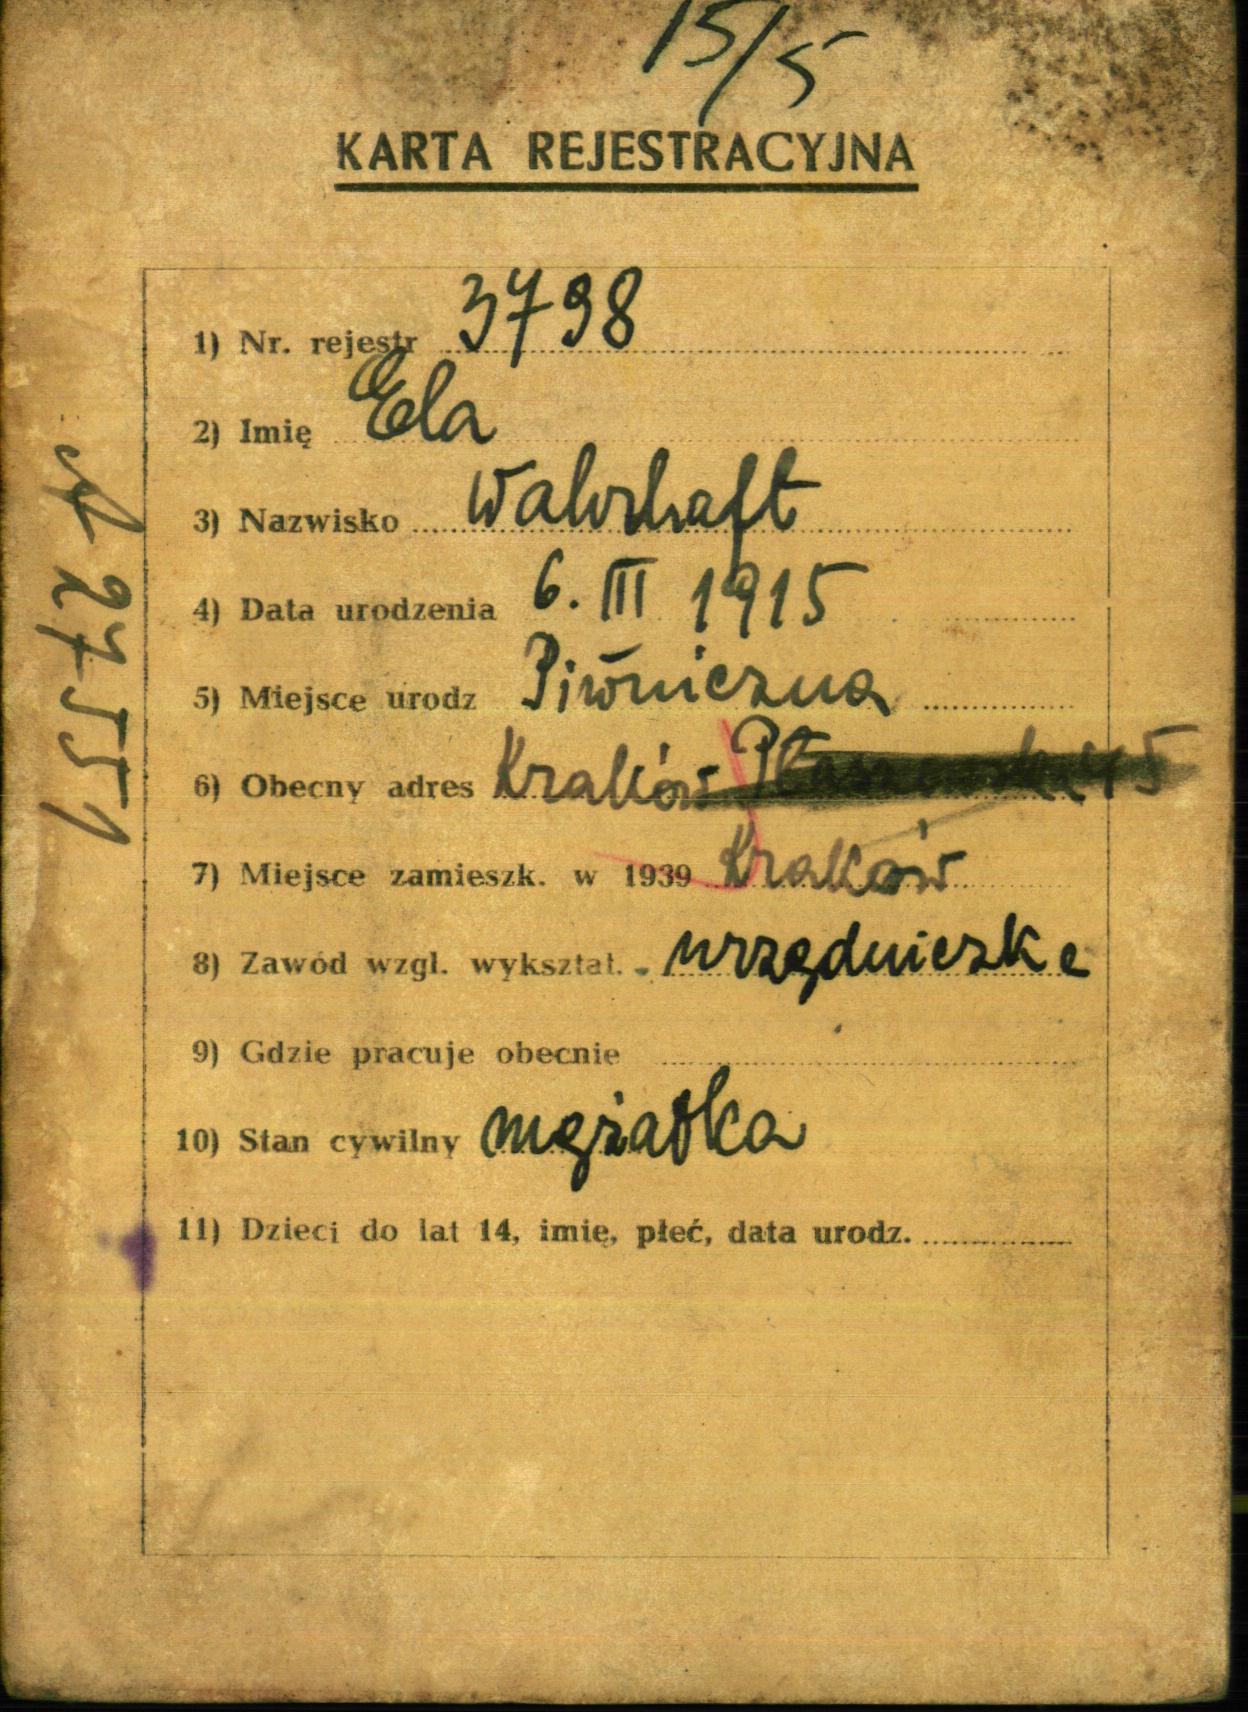 15/5
KARTA REJESTRACYJNA
1) Nr. rejestr 3798
2) Imię Ela
3) Nazwisko Wahrhaft
4) Data urodzenia 6. III 1915
5) Miejsce urodz Piwniczna
6) Obecny adres Kraków
7) Miejsce zamieszk. w 1939 Kraków
8) Zawód wzgl. wykształ. urzędniczka
9) Gdzie pracuje obecnie
10) Stan cywilny mężatka
11) Dzieci do lat 14, imię, płeć, data urodz.
A 27551